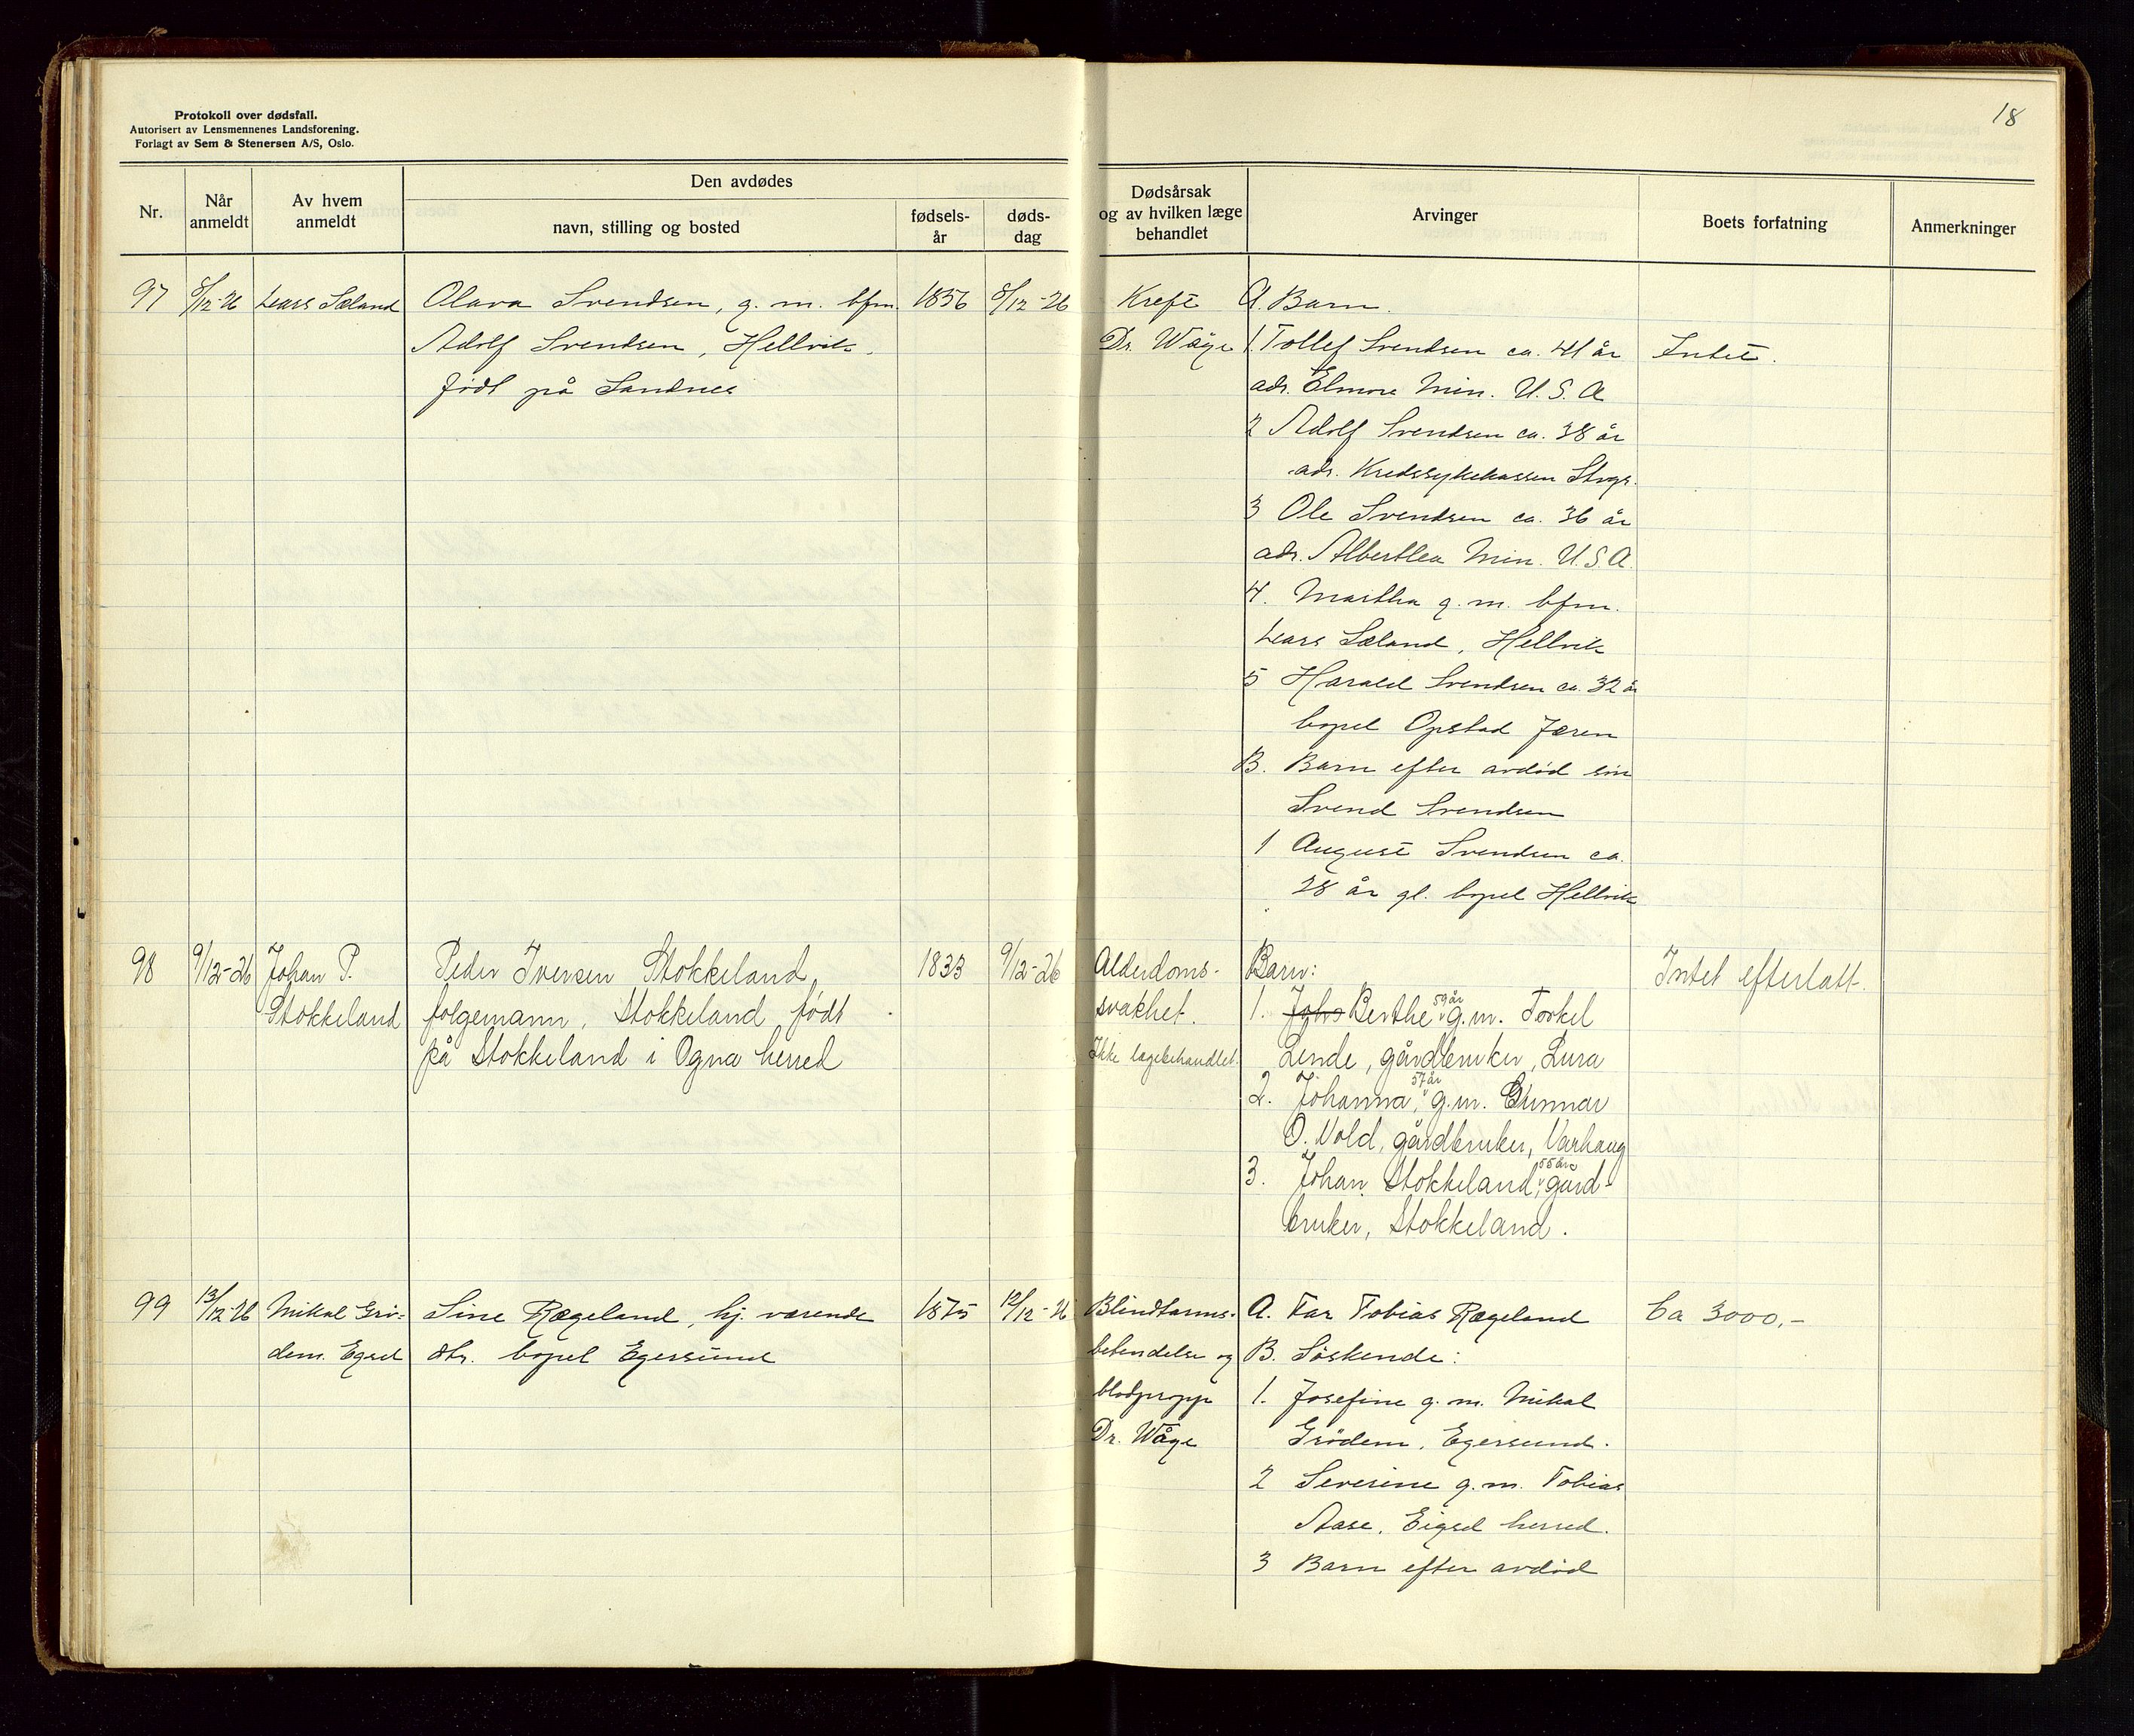 Protokoll over dødsfall.
Autorisert av Lensmennenes Landsforening.
Forlagt av Sem & Stenersen A/S, Oslo.
18
Nr.
Når anmeldt
Av hvem anmeldt
Den avdødes
navn, stilling og bosted
fødsels-år
døds-dag
Dødsårsak og av hvilken læge behandlet
Arvinger
Boets forfatning
Anmerkninger
97
8/12-26
Lars Sæland
Olava Svendsen, g. m. bfm.
Adolf Svendsen, Hellvik.
født på Sandnes
1856
8/12-26
Kreft
Dr. Wåge
A. Barn.
1. Tollef Svendsen ca. 41 år
adr. Elmore Min. U.S.A
2 Adolf Svendsen ca. 38 år
adr. Kredssykekassen Stvgr.
3 Ole Svendsen ca. 36 år
adr. Albertlea Min. U.S.A.
4. Martha g. m. bfm.
Lars Sæland, Hellvik
5 Harald Svendsen ca. 32 år
bopel Opstad Jæren
B. Barn efter avdød sön
Svend Svendsen
1 August Svendsen ca.
28 år gl. bopel Hellvik
Intet.
98
9/12-26
Johan P.
Stokkeland
Peder Iversen Stokkeland,
følgemann, Stokkeland født
på Stokkeland i Ogna herred
1833
9/12-26
Alderdoms-
svakhet.
Ikke lægebehandlet.
Barn:
1. Johs Berthe, 59 år g.m. Torkel
Lende, gårdbruker, Lura
2. Johanna, 57 år g.m. Gunnar
O. Vold, gårdbruker, Varhaug
3. Johan Stokkeland, 55 år, gård-
bruker, Stokkeland.
Intet efterlatt.
99
13/12-26
Mikal Grö-
dem. Egsd
Sine Rægeland, hj. værende
dtr. bopel Egersund
1875
12/12-26
Blindtarms-
betendelse og
blodpropp
Dr. Wåge
A. Far Tobias Rægeland
B. Söskende:
1. Josefine g. m. Mikal
Grödem, Egersund.
2 Severine g. m. Tobias
Aase, Eigsd herred.
3 Barn efter avdöd
Ca 3000,-